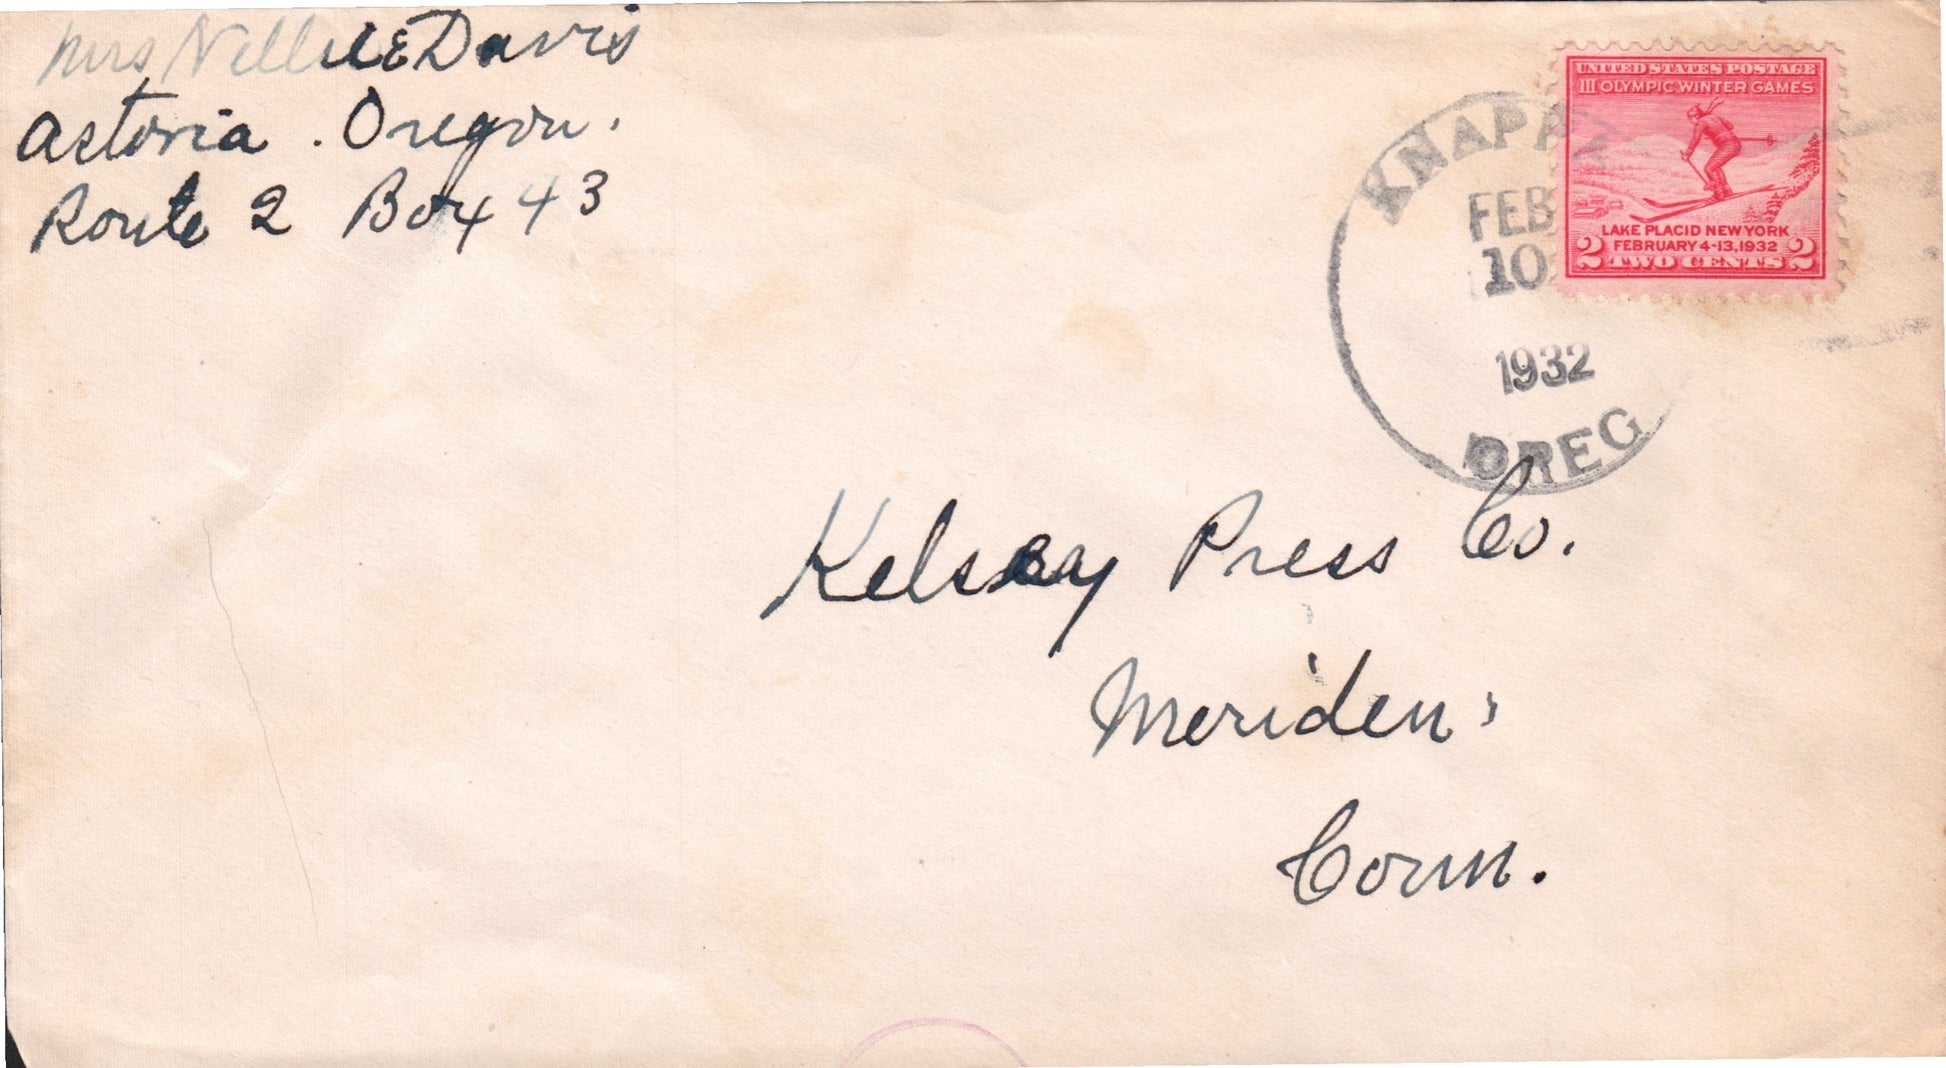 Mrs Nellie E Davis
Astoria. Oregon.
Route 2 Box 43
UNITED STATES POSTAGE
III OLYMPIC WINTER GAMES
LAKE PLACID NEW YORK
FEBRUARY 4-13, 1932
2 TWO CENTS 2
KNAPPA
FEB
10
1932
OREG
Kelsey Press Co.
Meriden,
Conn.